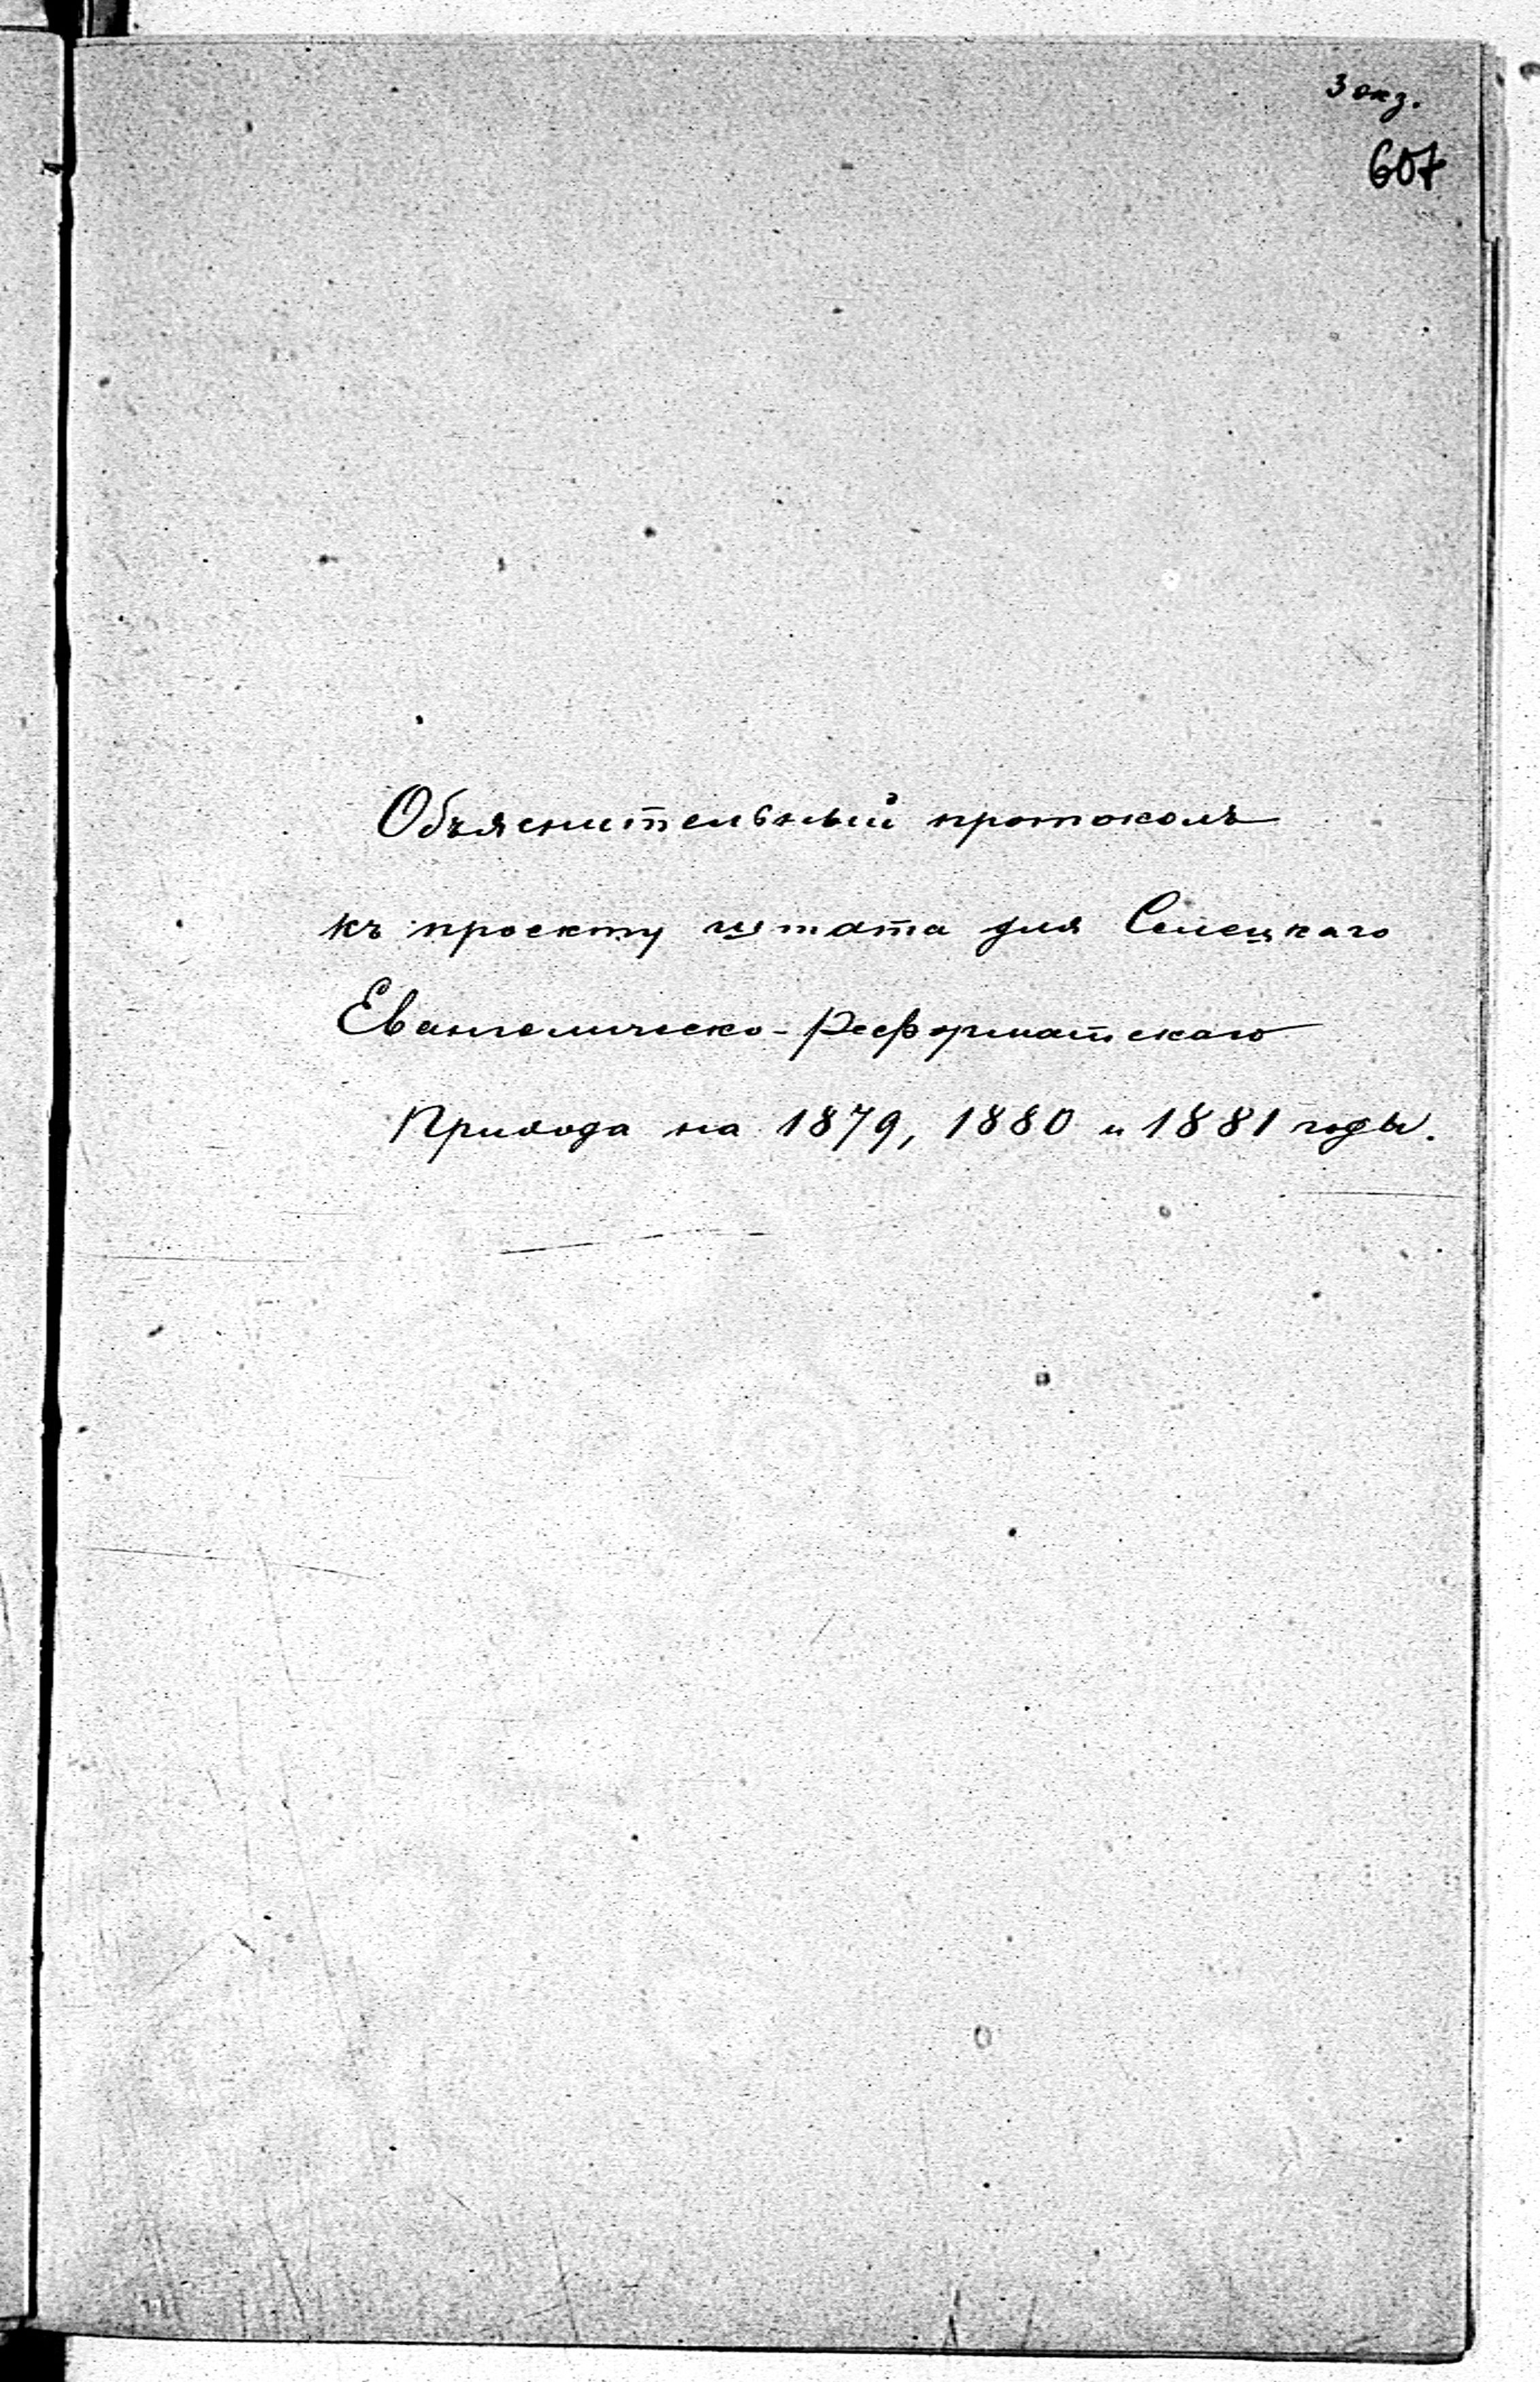 3 экз.
607
Объяснительный протоколъ
къ проекту штата для Селецкаго
Евангелическо-Реформатскаго
Прихода на 1879, 1880 и 1881 годы.